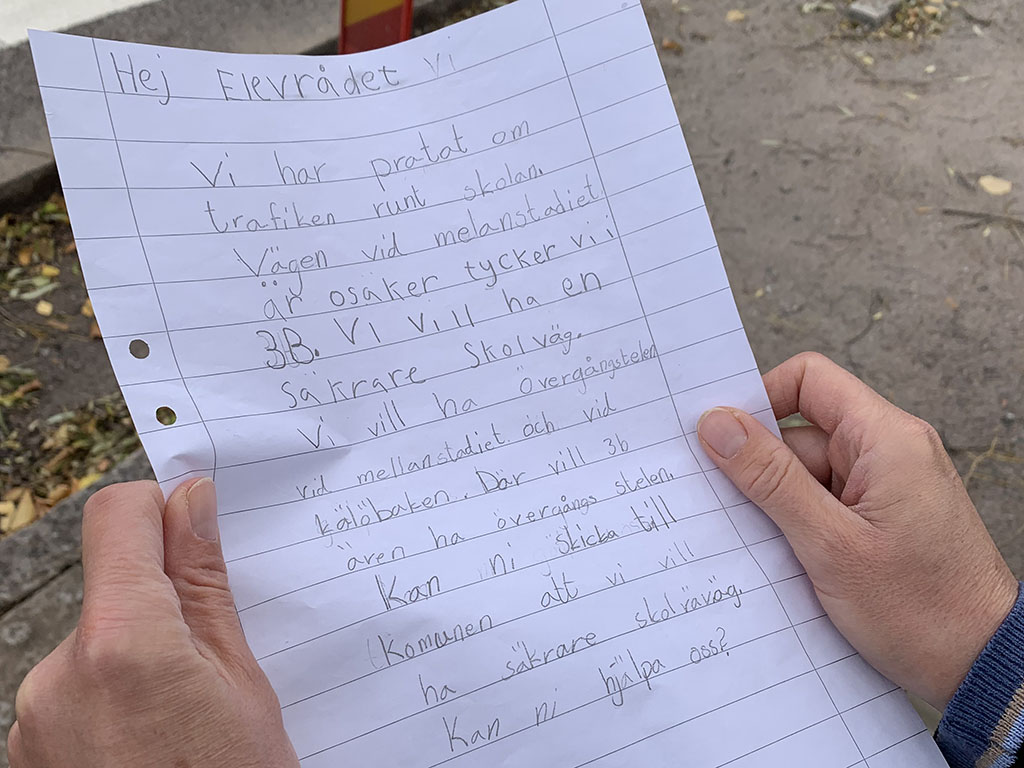 Hej Elevrådet Vi
Vi har pratat om
trafiken runt skolan.
Vägen vid melanstadiet
är osäker tycker vi i
3B. Vi vill ha en
säkrare skolväg.
Vi vill ha övergångstelen
vid mellanstadiet och vid
kälöbaken. Där vill 3b
även ha övergångs stelen.
Kan ni skicka till
Komunen att vi vill
ha säkrare skolväväg.
Kan ni hjälpa oss?